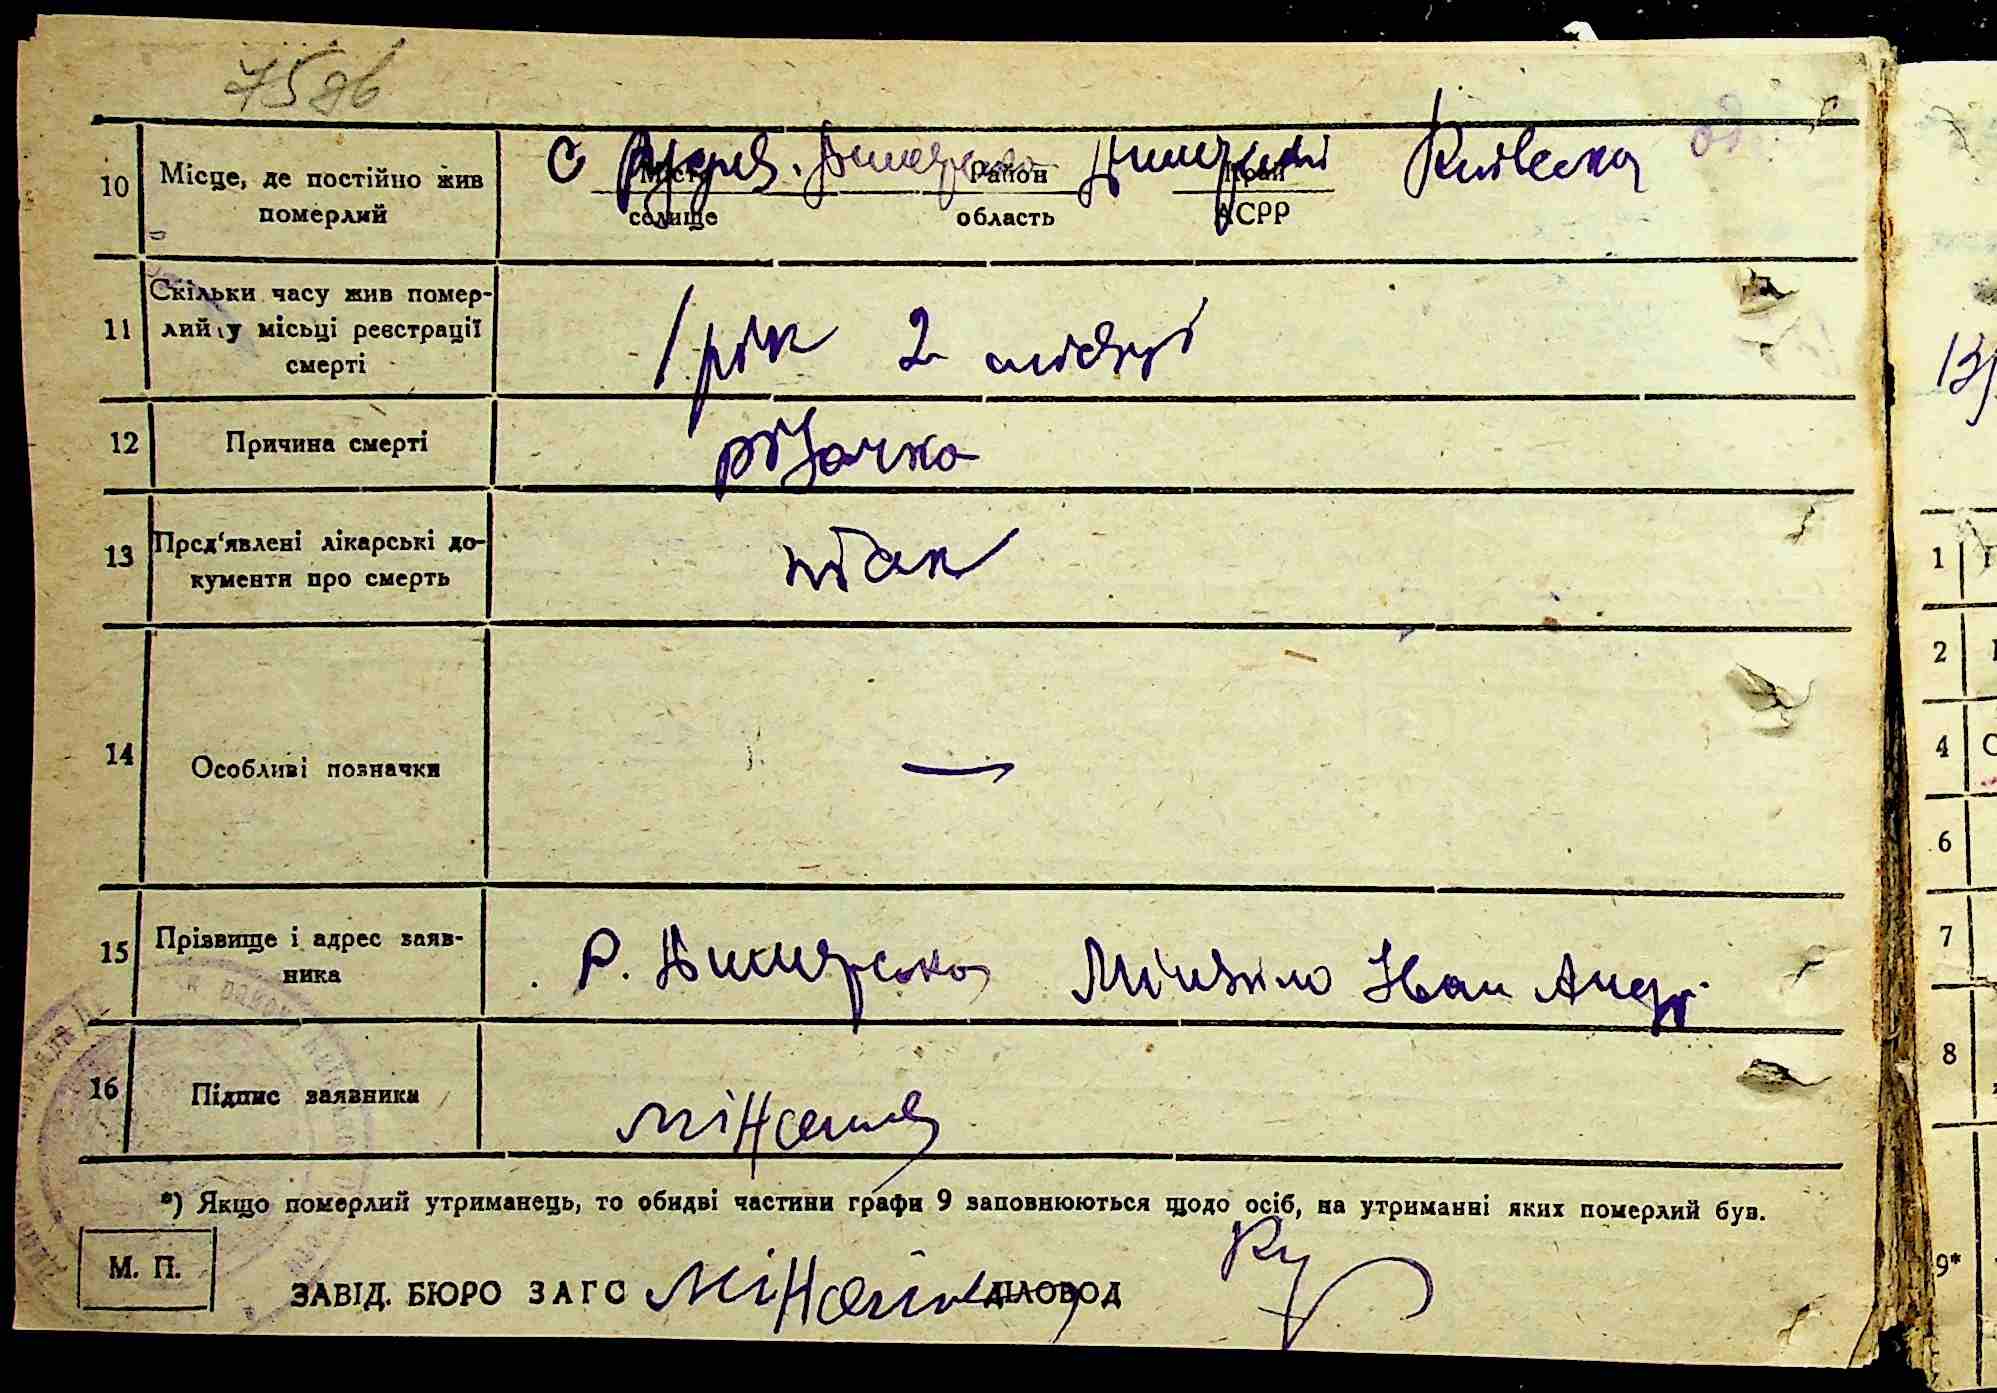 75 зв
10 Місце, де постійно жив померлий
с Димерський Київська об.
Місто Район Край
селище область АСРР
11 Скільки часу жив помер-
лий у місьці реєстрації
смерті
1 рік 2 місяці
12 Причина смерті
різачка
13 Пред'явлені лікарські до-
кументи про смерть
ніяк
14 Особливі позначки
—
15 Прізвище і адрес заяв-
ника
Р. Димерська Іван Андр.
16 Підпис заявника
*) Якщо померлий утриманець, то обидві частини графи 9 заповнюються щодо осіб, на утриманні яких померлий був.
М. П.
ЗАВІД. БЮРО ЗАГС ДІЛОВОД
13
1
2
4
6
7
8
9*